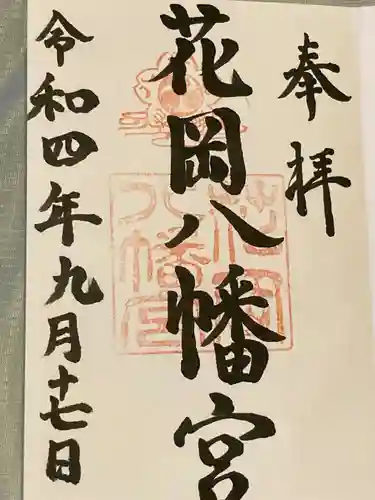 奉拝
花岡八幡宮
令和四年九月十七日
花岡八幡宮